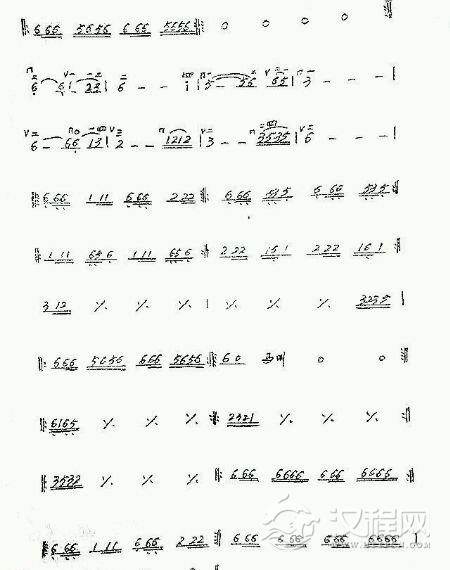 666 5656 666 5656 0 0 0 0
6 61 23 | 6 - - 1 | 5 - 56 65 | 3 - - |
6 - 66 13 | 2 - - 1212 | 3 - - 3535 | 6 - - |
666 111 666 222 666 535 666 535
111 656 111 656 222 161 222 161
312 ٪ ٪ ٪ | ٪ ٪ ٪ 3235 |
666 5656 666 5656 60 0 0
6165 ٪ ٪ ٪ 2321 ٪ ٪ ٪
3532 ٪ ٪ ٪ 666 6666 666 6666
666 111 666 222 666 666 666 6666
汉程网